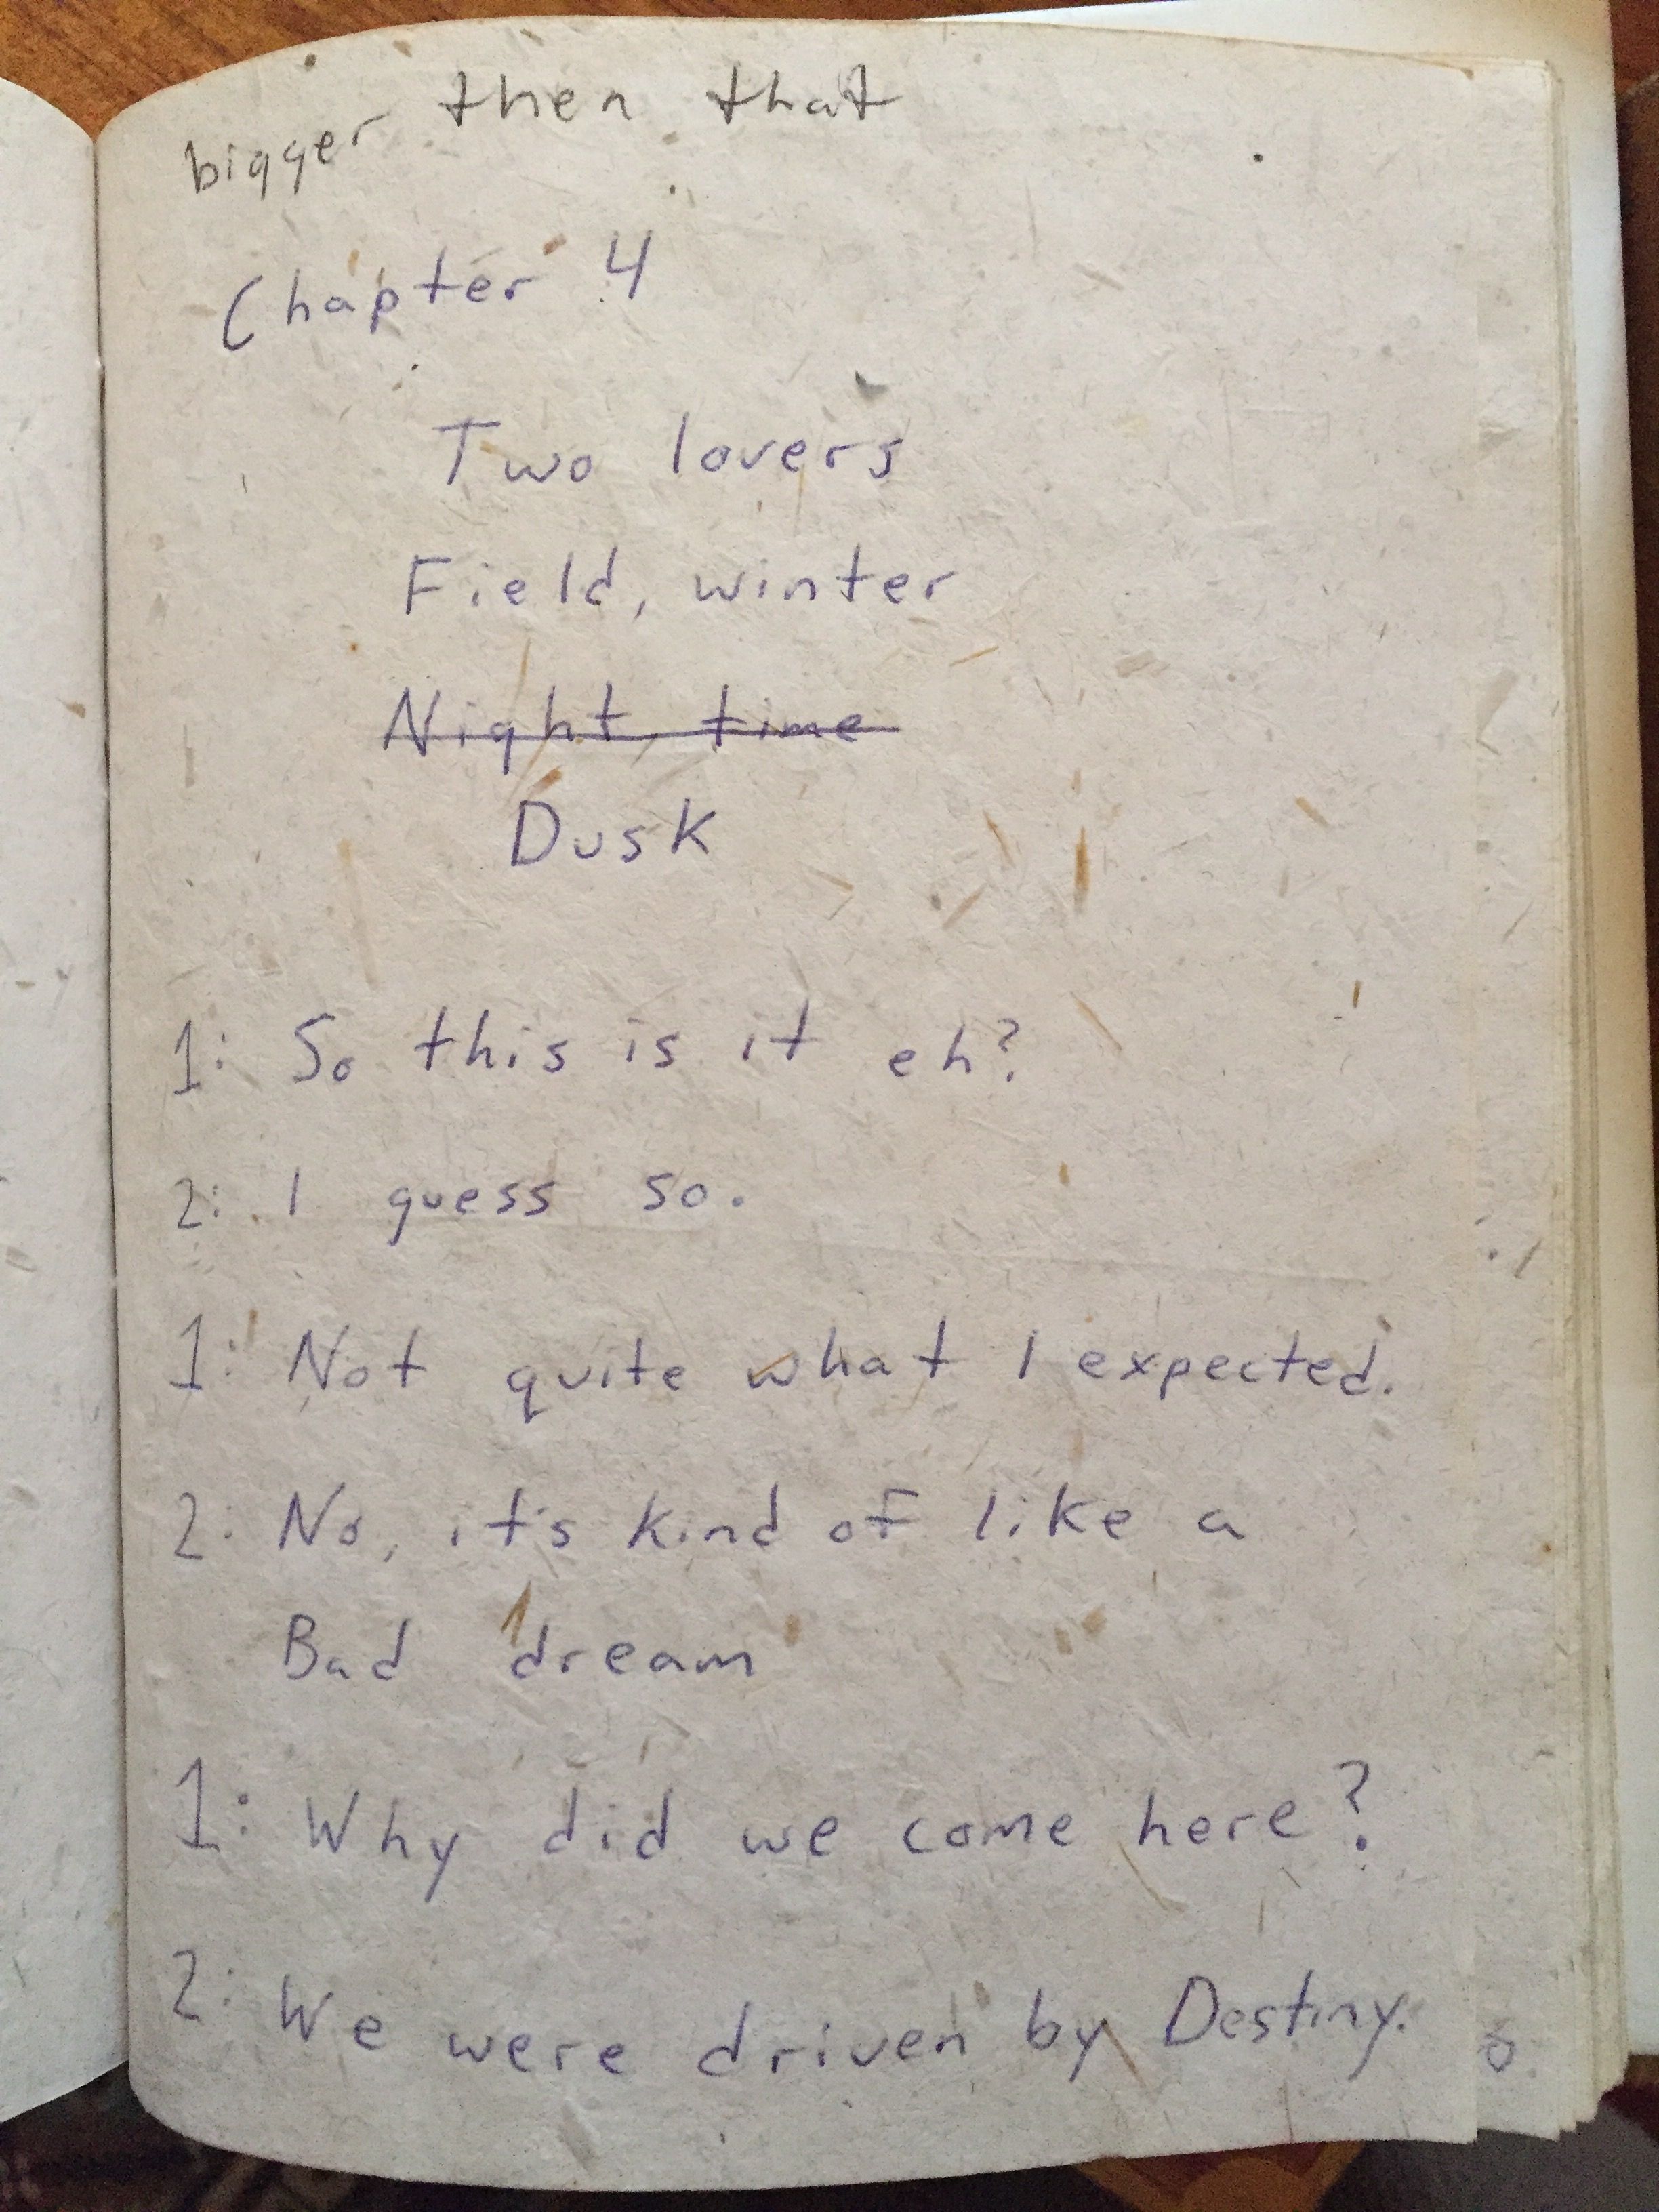 bigger then that
Chapter 4
Two lovers
Field, winter
Night time
Dusk
1: So this is it eh?
2: I guess so.
1: Not quite what I expected.
2: No, it's kind of like a
Bad dream
1: Why did we come here?
2: We were driven by Destiny.